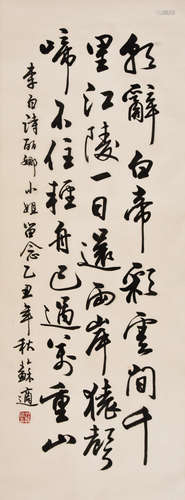 朝辭白帝彩雲間千
里江陵一日還兩岸猿聲
啼不住輕舟已過萬重山
李白詩丽娜小姐留念乙丑年秋蘇適